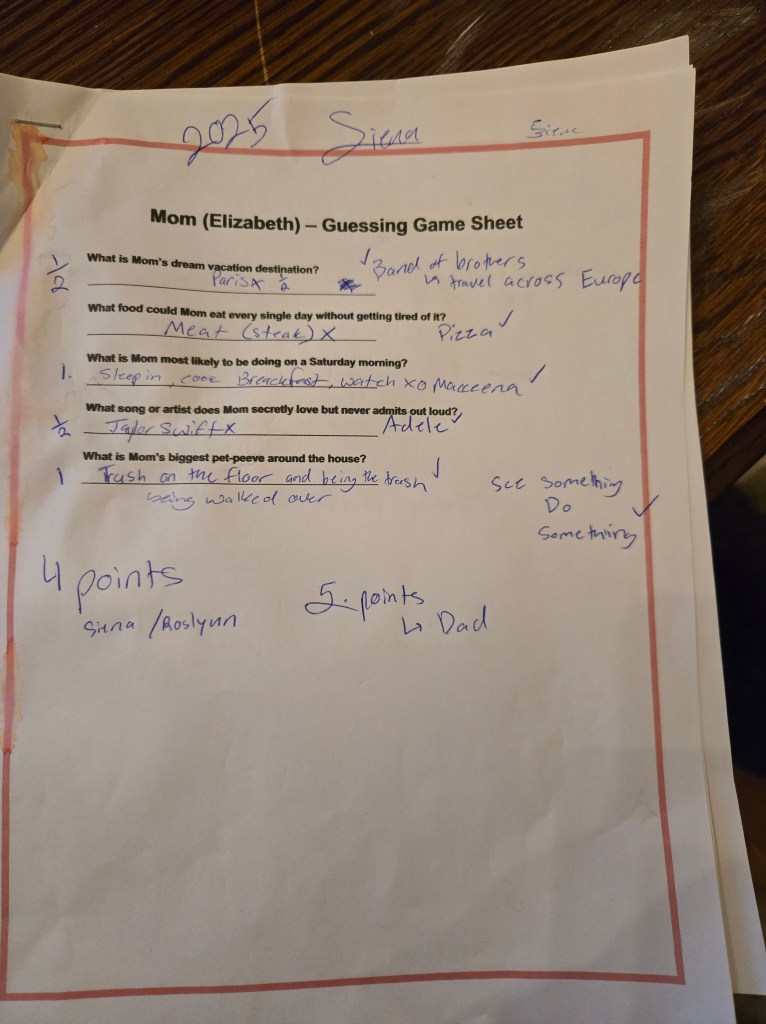 2025 Siena Siena
Mom (Elizabeth) – Guessing Game Sheet
½ What is Mom's dream vacation destination? ✓ Band of brothers
Paris x ½ ↳ travel across Europe
What food could Mom eat every single day without getting tired of it?
Meat (steak) X Pizza ✓
What is Mom most likely to be doing on a Saturday morning?
1. Sleep in, cook Breackfast, watch xo Macceena ✓
What song or artist does Mom secretly love but never admits out loud?
½ Taylor Swift x Adele ✓
What is Mom's biggest pet-peeve around the house?
1 Trash on the floor and being the trash ✓ See something
being walked over Do ✓
Something
4 points 5. points
Siena / Roslynn ↳ Dad